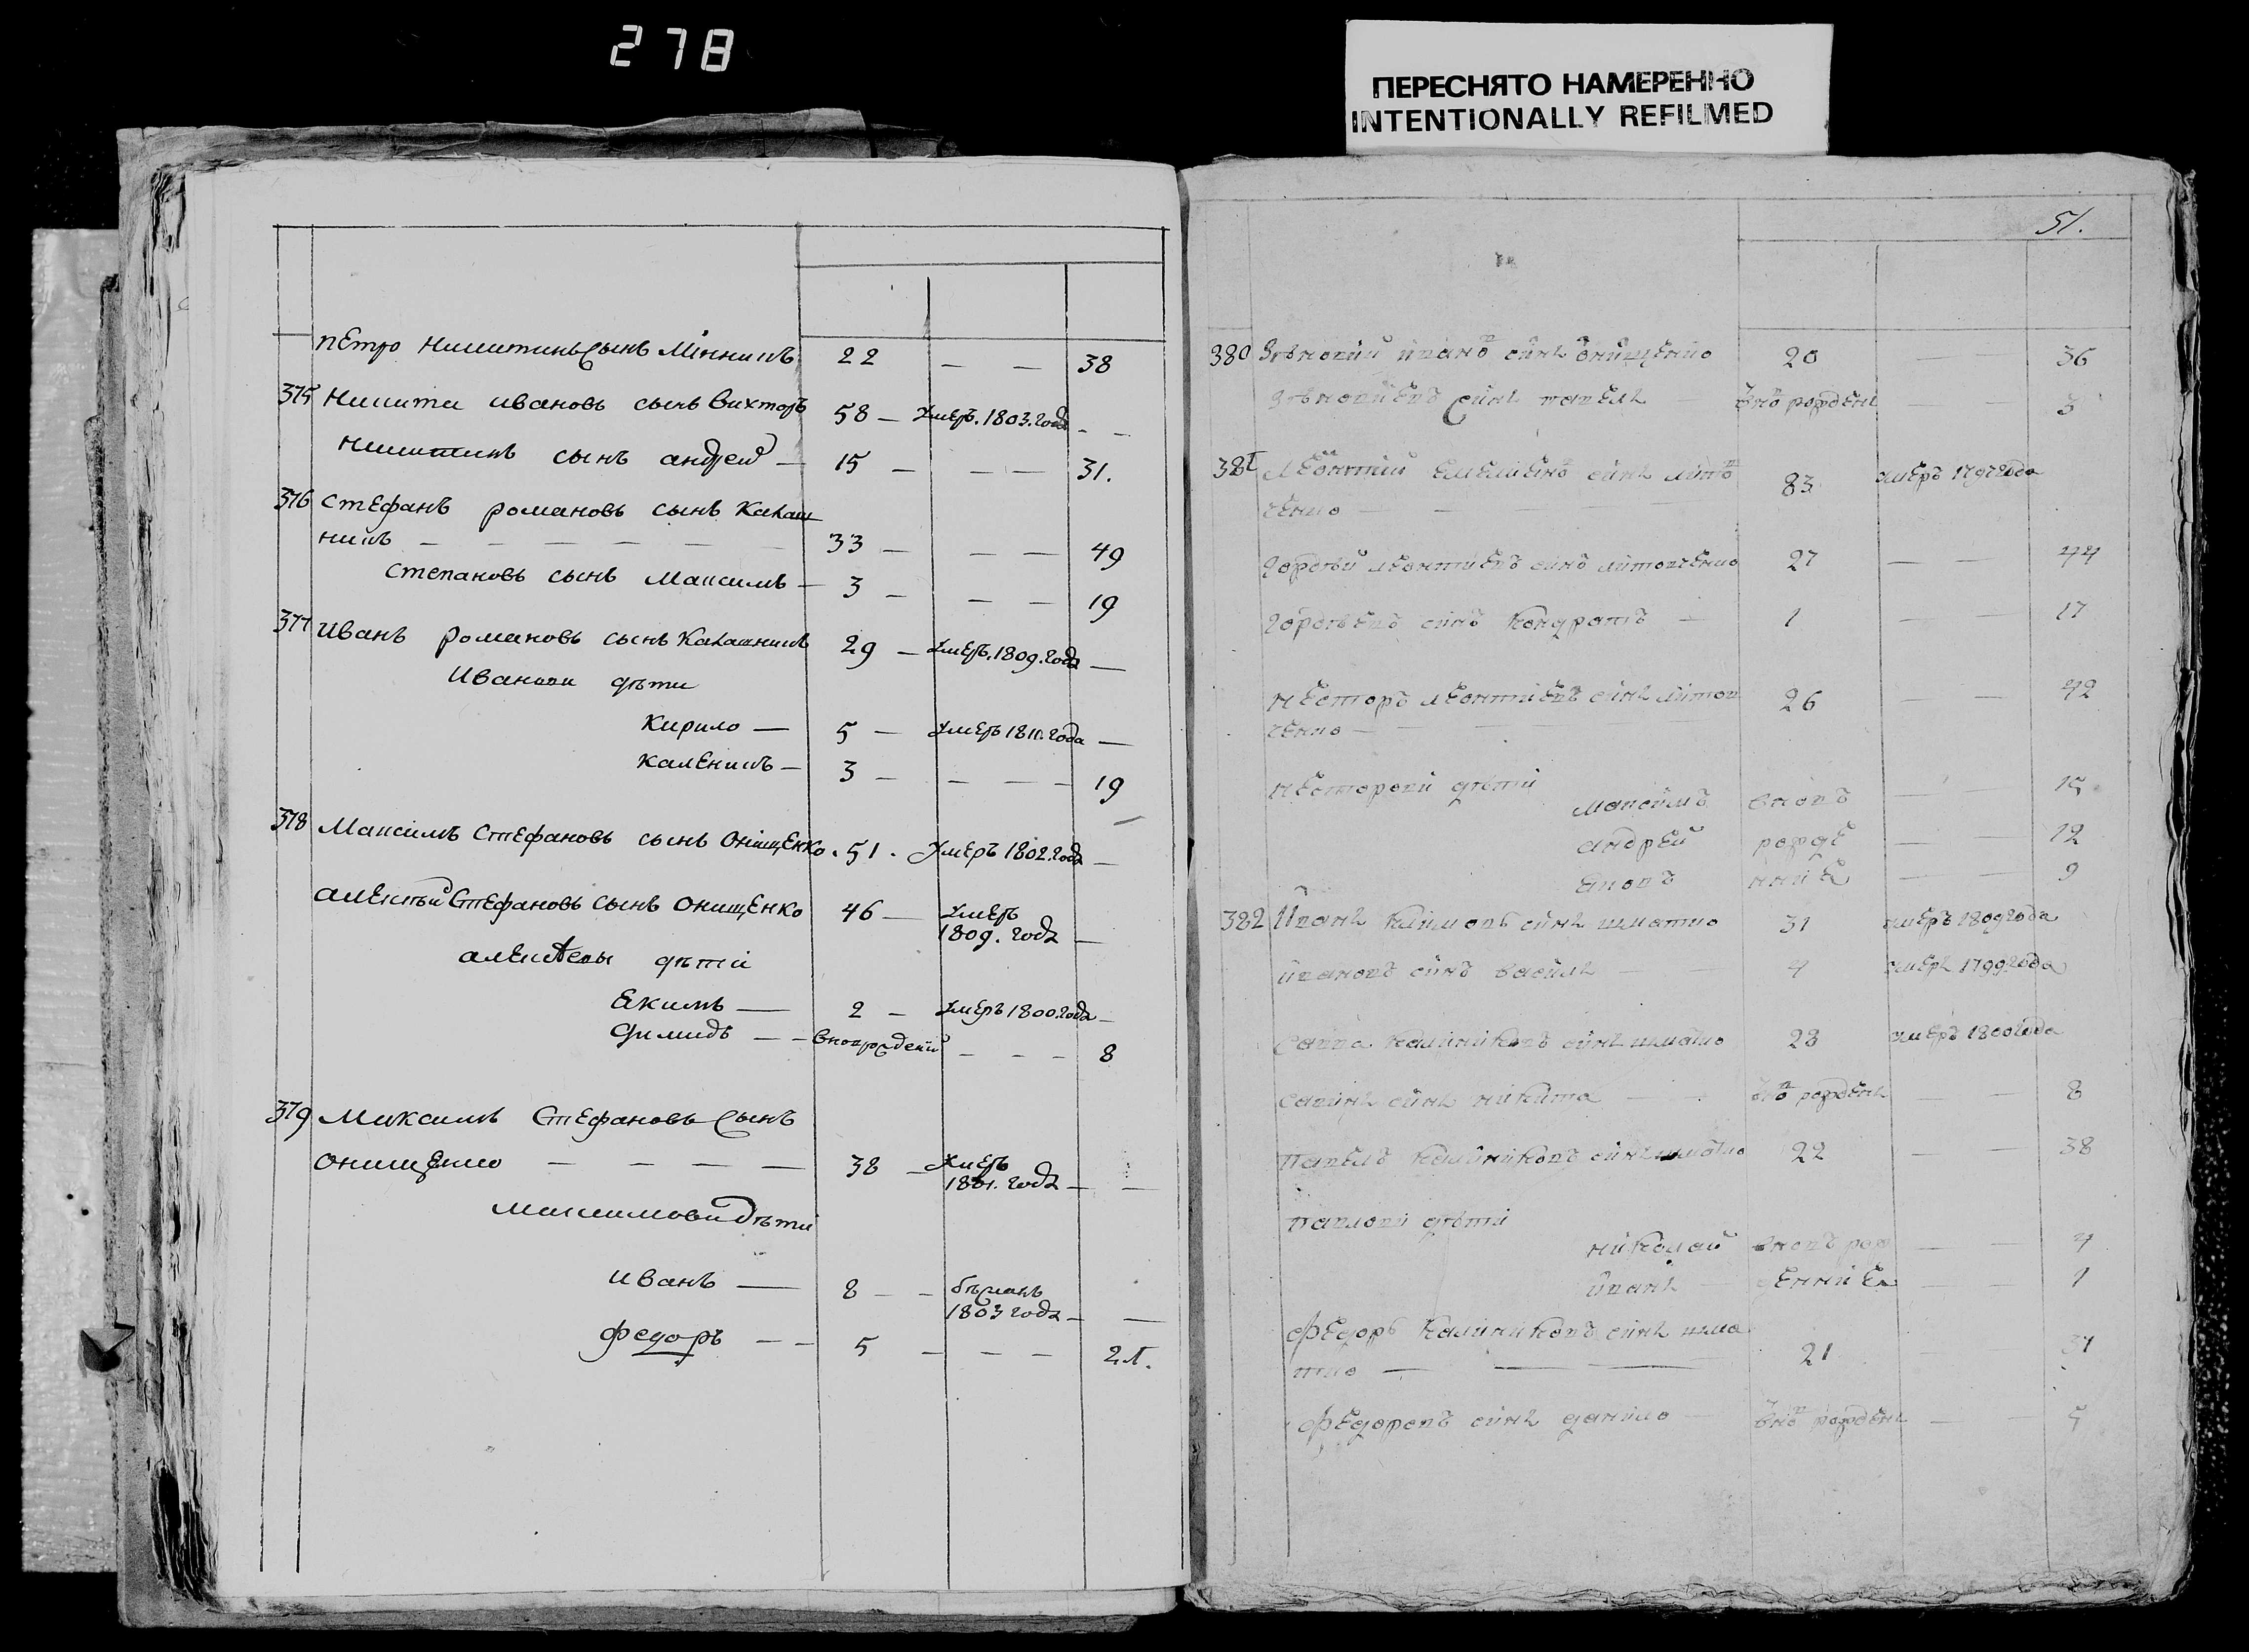 278
ПЕРЕСНЯТО НАМЕРЕННО
INTENTIONALLY REFILMED
Петро Никитинъ Сынъ 22 — — 38
375 Никита ивановъ сынъ Вихторъ 58 — Умеръ. 1803. года — —
Никитинъ сынъ андрей — 15 — — — 31.
376 Стефанъ романовъ сынъ Калаш
никъ — — — — — — 33 — — — 49
Степановъ сынъ Максимъ — 3 — — — 19
377 Иванъ романовъ сынъ Калашникъ 29 — Умеръ. 1809. года —
Иванови дѣти
Кирило — 5 — Умеръ 1811. года —
Каленикъ — 3 — — — — 19
378 Максимъ Стефановъ сынъ Онищенко. 51. Умеръ 1802. года —
алексѣй Стефановъ сынъ Онищенко 46 — Умеръ
1809. года —
алексѣевы дѣти
Екимъ — 2 — Умеръ 1800. года —
Димидъ — — вновърождений — — — 8
379 Максимъ Стефановъ Сынъ
Онищенко — — — — 38 — Умеръ
1801. года — —
Максимови дѣти
Иванъ — 8 — — бѣжалъ
1803 года — —
Федоръ — — 5 — — — 21.
51.
380 Зѣновий иванов синъ онищенко 20 36
Зѣновиевъ синъ павелъ внов рожденъ — — 3
381 Леонтий Емелянов синъ литов
ченко — — — 83 умеръ 1797 года
Гордѣй леонтиевъ синъ литовченко 27 — — 44
Гордѣевъ синъ Кондратъ — 1 — — 17
Несторъ леонтиевъ синъ литов
ченко — — — 26 — — 42
Несторови дѣти
максимъ вновъ — — 15
андрей рожде — — 12
яковъ нние — — 9
382 Иванъ Климовъ синъ шматко 31 умеръ 1809 года
ивановъ синъ василь — 4 умеръ 1799 года
Савва калиниковъ синъ шматко 28 умеръ 1800 года
Савинъ синъ никита — — внов рожденъ — 8
Павелъ калиниковъ синъ шматко 22 — — 38
Павлови дѣти
николай вновъ рож — — 4
иванъ — денние — — 1
Федоръ калиниковъ синъ шма
тко — — 21 — 37
Федоровъ синъ данило — внов рожденъ — — 5